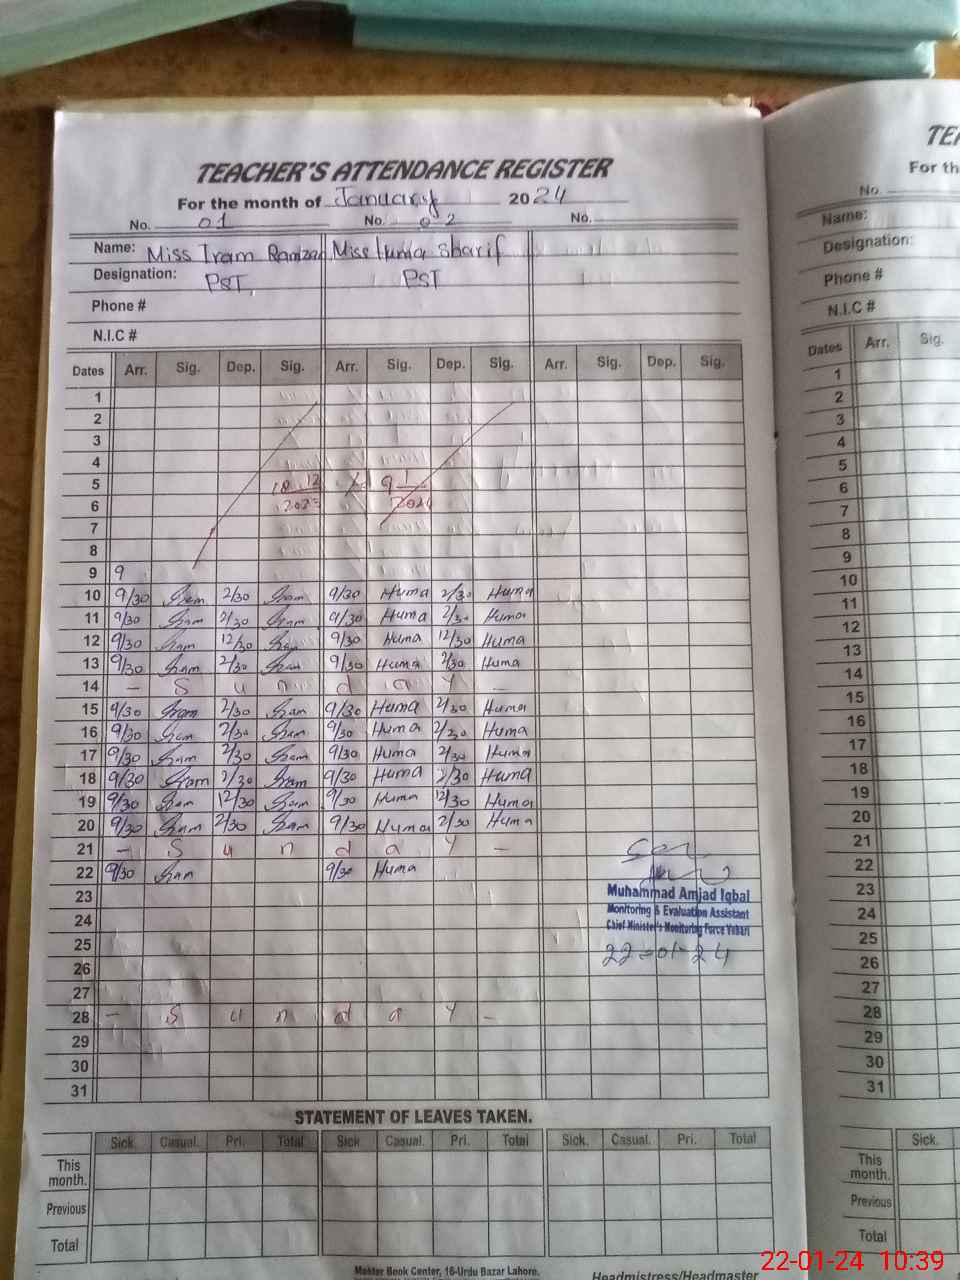 TEACHER'S ATTENDANCE REGISTER
For the month of January 2024
No. 01 No. 02 No.
Name: Miss Iram Ramzan Miss Huma Sharif
Designation: PST PST
Phone #
N.I.C #
Dates Arr. Sig. Dep. Sig. Arr. Sig. Dep. Sig. Arr. Sig. Dep. Sig.
1
2
3
4
5 18 12 9 1
6 2023 2024
7
8
9 9
10 9/30 Iram 2/30 Iram 9/30 Huma 2/30 Huma
11 9/30 Iram 2/30 Iram 9/30 Huma 2/30 Huma
12 9/30 Iram 12/30 Iram 9/30 Huma 12/30 Huma
13 9/30 Iram 2/30 Iram 9/30 Huma 2/30 Huma
14 - S u n d a y -
15 9/30 Iram 2/30 Iram 9/30 Huma 2/30 Huma
16 9/30 Iram 2/30 Iram 9/30 Huma 2/30 Huma
17 9/30 Iram 2/30 Iram 9/30 Huma 2/30 Huma
18 9/30 Iram 2/30 Iram 9/30 Huma 2/30 Huma
19 9/30 Iram 12/30 Iram 9/30 Huma 12/30 Huma
20 9/30 Iram 2/30 Iram 9/30 Huma 2/30 Huma
21 - S u n d a y -
22 9/30 Iram 9/30 Huma
23
24
25
26
27
28 - S u n d a y -
29
30
31
Muhammad Amjad Iqbal
Monitoring & Evaluation Assistant
Chief Minister's Monitoring Force Vehari
22-01-24
STATEMENT OF LEAVES TAKEN.
Sick. Casual. Pri. Total Sick Casual. Pri. Total Sick. Casual. Pri. Total
This month.
Previous
Total
Moktar Book Center, 16-Urdu Bazar Lahore.
Headmistress/Headmaster
For th
No.
Name:
Designation:
Phone #
N.I.C #
Dates Arr. Sig.
1
2
3
4
5
6
7
8
9
10
11
12
13
14
15
16
17
18
19
20
21
22
23
24
25
26
27
28
29
30
31
Sick.
This month.
Previous
Total
22-01-24 10:39